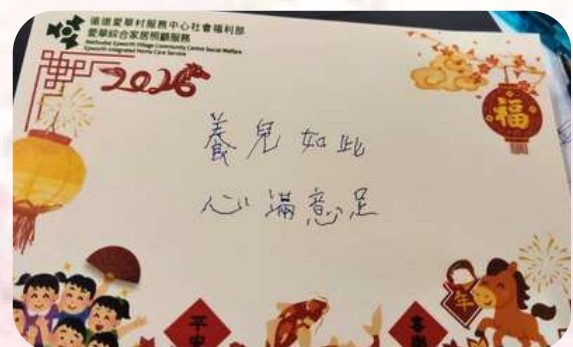 循道愛華村服務中心社會福利部
愛華綜合家居照顧服務
Methodist Epworth Village Community Centre Social Welfare
Epworth Integrated Home Care Service
2026
福
養兒如此
心滿意足
平安
喜樂
年